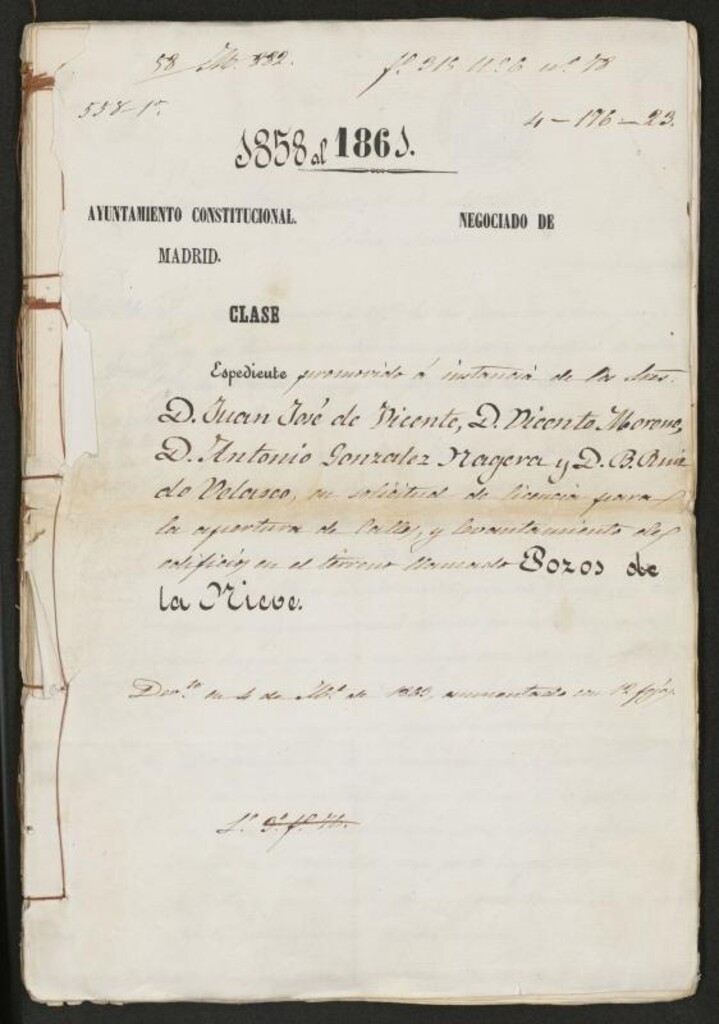 58 M. 882.
fº 313
nº 78
558-1º
4 - 176 - 23.
1858 al 1861.
AYUNTAMIENTO CONSTITUCIONAL.
NEGOCIADO DE
MADRID.
CLASE
Espediente promovido á instancia de los Sres.
D. Juan José de Vicente, D. Vicente Moreno,
D. Antonio Gonzalez Nagera y D. B. Ruiz
de Velasco, en solicitud de licencia para
la apertura de Calles, y levantamiento de
edificios en el terreno llamado Pozos de
la Nieve.
en 4 de de 1883, aumentado en 12 fojas